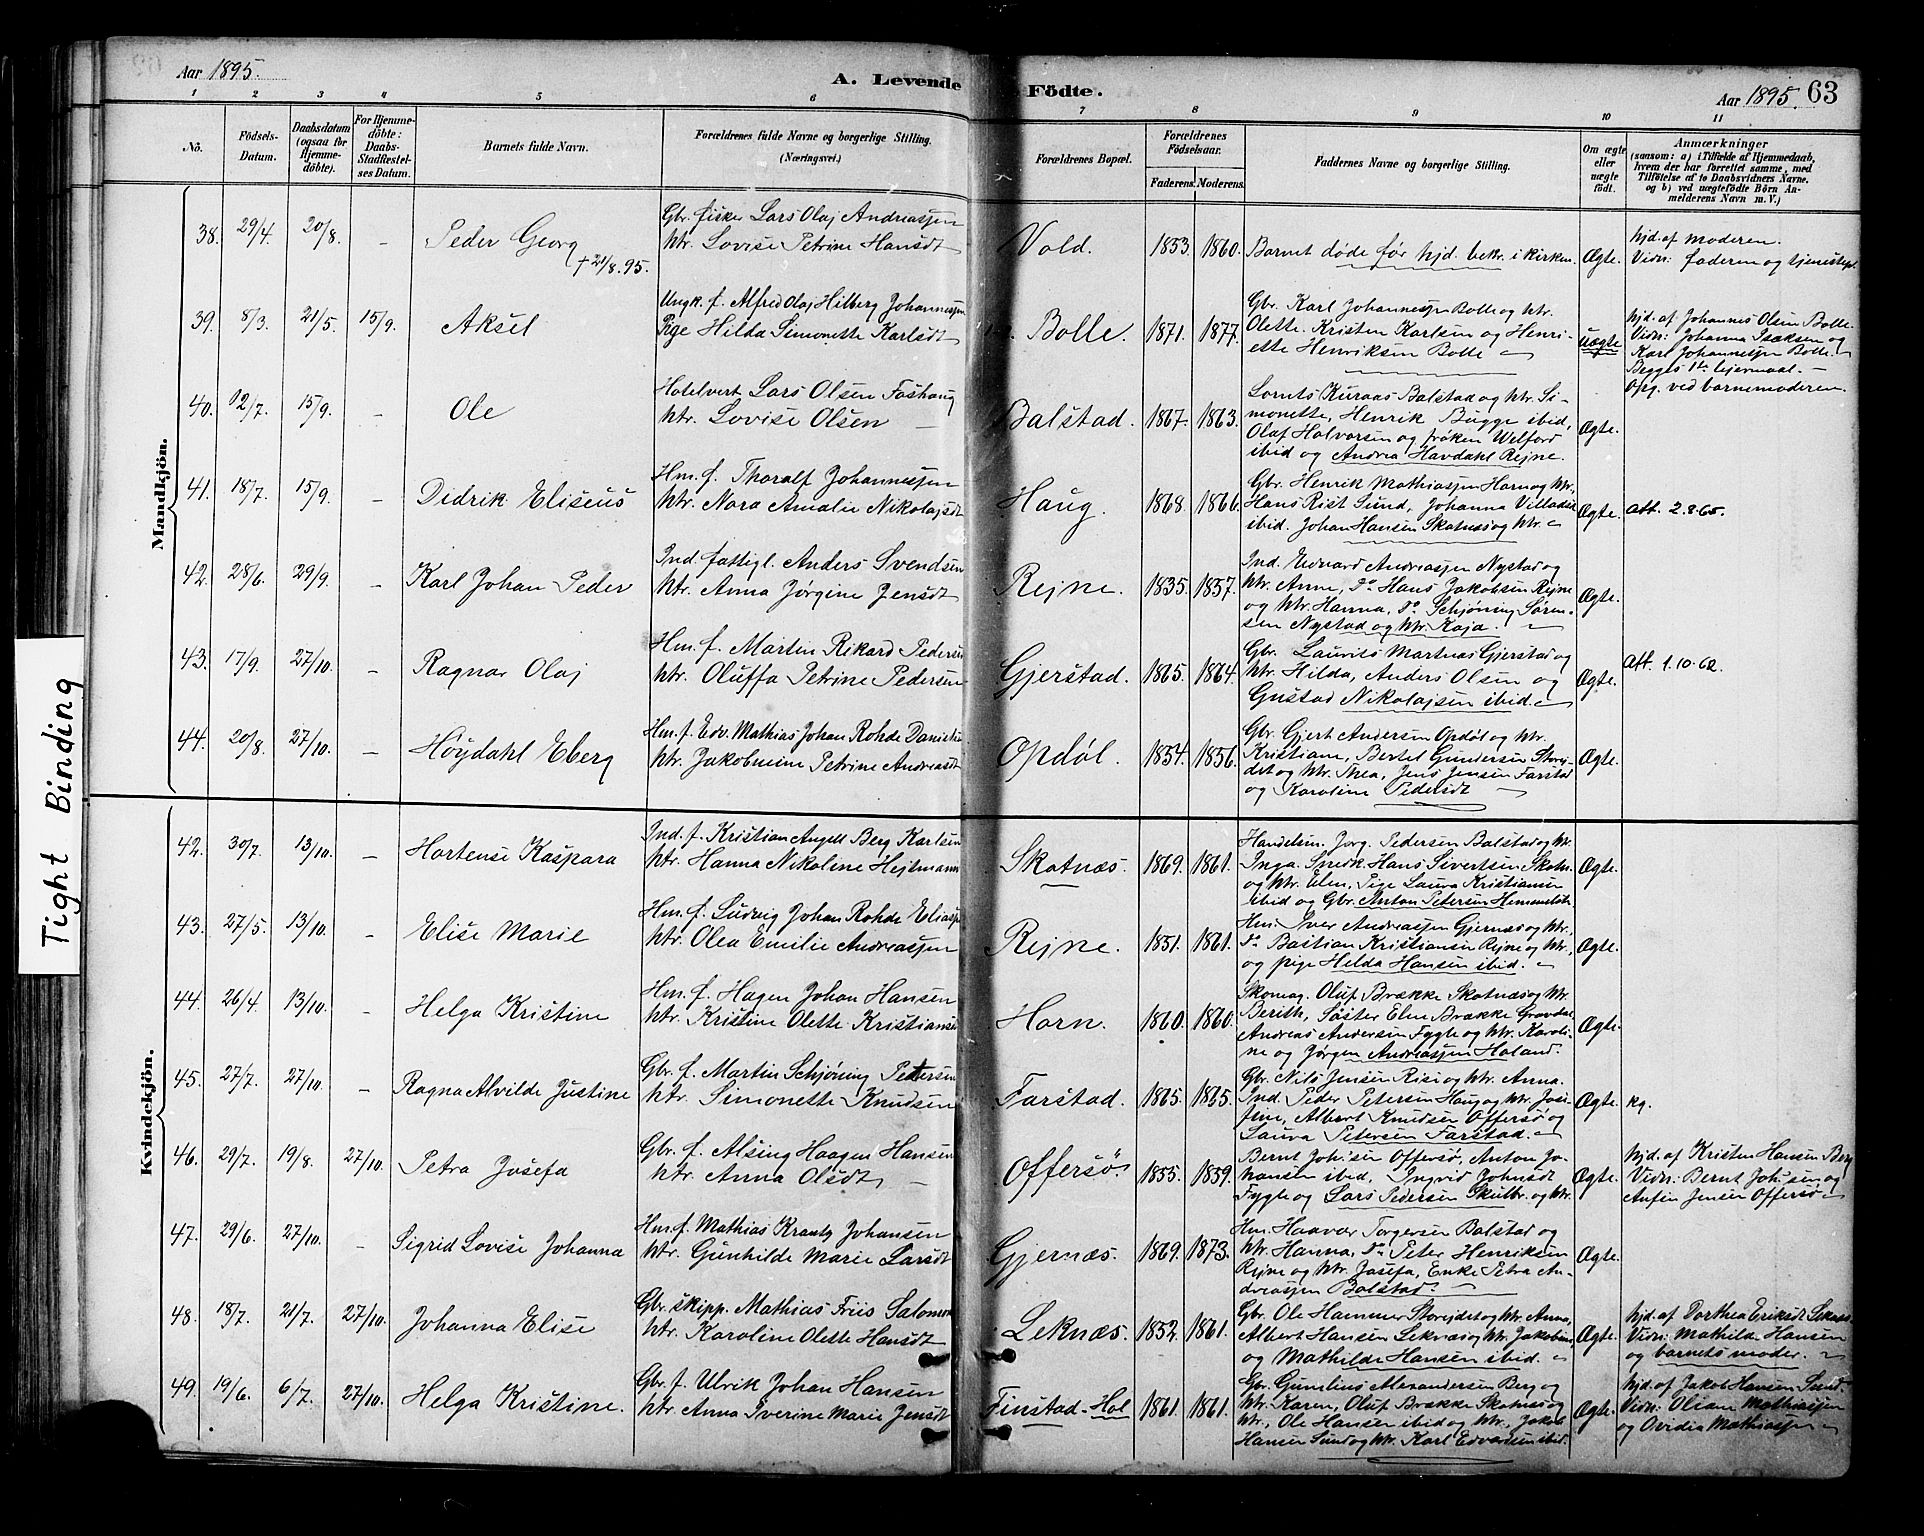 Aar 1895.
A. Levende Födte.
Aar 1895. 63
1 2 3 4 5 6 7 8 9 10 11
Nö.
Födsels-Datum.
Daabsdatum (ogsaa för Hjemme-döbte).
For Hjemme-döbte: Daabs-Stadfæstel-ses Datum.
Barnets fulde Navn.
Forældrenes fulde Navne og borgerlige Stilling. (Næringsvei.)
Forældrenes Bopæl.
Forældrenes Födselsaar.
Faderens. Moderens.
Faddernes Navne og borgerlige Stilling.
Om ægte eller uægte födt.
Anmærkninger
(saasom: a) i Tilfælde af Hjemmedaab, hvem der har forrettet samme, med Tilföielse af to Daabsvidners Navne. og b) ved uægtefödte Börn An-melderens Navn m. V.)
Mandkjön.
38. 29/4. 20/8. - Peder Georg +21/8.95.
Gbr. fisker Lars Olaj Andreassen
htr. Lovise Petrine Hansdt
Vold. 1853. 1860.
Barnet døde før hjd. bekr. i kirken.
Ægte.
hjd. af moderen.
Vidn: faderen og tjenestepi.
39. 8/3. 21/5. 15/9. Aksel
Ungk. f. Alfred Olaj Hilberg Johannessen
Pige Hilda Simonette Karlsdt
Bolle. 1871. 1877.
Gbr. Karl Johannessen Bolle og htr.
Olette. Kristen Karlsen og Henri-
ette Henriksen Bolle
uægte
hjd. af Johannes Olsen Bolle.
Vidn: Johanna Isaksen og
Karl Johannessen Bolle.
Begges 1te leiermaal. -
Opg. ved barnemoderen.
40. 12/7. 15/9. - Ole
Hotelvert Lars Olsen Fashaug
htr. Lovise Olsen
Balstad. 1867. 1863.
Lornts Kuraas Balstad og htr. Si-
monette, Henrik Bugge ibid,
Olaf Halvorsen og frøken Welford
ibid og Andrea Havdahl Rejne.
Ægte.
41. 18/7. 15/9. - Didrik Eliseus
Hm. f. Thoralf Johannessen
htr. Nora Amalie Nikolajsdt
Haug. 1868. 1866.
Gbr. Henrik Mathiassen Horn og htr.,
Hans Rist Sund, Johanna Villadsen
ibid. Johan Hansen Skotnæs og htr.
Ægte. Att. 2.8.65.
42. 28/6. 29/9. - Karl Johan Peder
Ind. fattigl. Anders Svendsen
htr. Anna Jørgine Jensdt
Rejne. 1835. 1857.
Ind. Edvard Andreassen Nystad og
htr. Anne, do Hans Jakobsen Rejne
og htr. Hanna, do Schjøning Søren-
sen Nystad og htr. Kaja.
Ægte.
43. 17/9. 27/10. - Ragnar Olaj
Hm. f. Martin Rikard Pedersen
htr. Oluffa Petrine Pedersen
Gjerstad. 1865. 1864.
Gbr. Laurits Martnas Gjerstad og
htr. Hilda, Anders Olsen og
Gustad Nikolajsen ibid.
Ægte. Att. 1.10.62.
44. 20/8. 27/10. - Höydahl Eberg
Hm. f. Edv. Mathias Johan Rohde Danielsen
htr. Jakobmine Petrine Andreasdt
Opdøl. 1854. 1856.
Gbr. Gjert Andersen Opdøl og htr.
Kristiane, Bertel Gundersen Storej-
det og htr. Thea, Jens Jensen Farstad
og Karoline Pedersdt
Ægte.
Kvindekjön.
42. 30/7. 13/10. - Hortense Kaspara
Ind. f. Kristian Angell Berg Karlsen
htr. Hanna Nikoline Hejtmann
Skotnæs. 1869. 1861.
Handelsm. Jørg. Pedersen Balstad og htr.
Inga. Snedk. Hans Sivertsen Skotn.
og htr. Elen, Pige Laura Kristiansen
ibid og Gbr. Anton Petersen Himmelst.
Ægte.
43. 27/5. 13/10. - Elise Marie
Hm. f. Ludvig Johan Rohde Eliassen
htr. Olea Emilie Andreassen
Rejne. 1851. 1861.
Hm. Iver Andreassen Gjernæs og htr.,
do Bastian Kristiansen Rejne og htr.,
og pige Helda Hansen ibid.
Ægte.
44. 26/4 13/10. - Helga Kristine
Hm. f. Hagen Johan Hansen
htr. Kristine Olette Kristians
Horn. 1860. 1860.
Skomag. Oluf Brække Skotnæs og htr.
Berith, Søster Elen Brække Gravdal,
Andreas Andersen Fygle og htr. Karoli-
ne og Jørgen Andreassen Holand.
Ægte.
45. 27/7. 27/10. - Ragna Alvilde Justine
Gbr. f. Martin Schjøning Petersen
htr. Simonette Knudsen
Farstad. 1865. 1865.
Gbr. Nils Jensen Risi og htr. Anna.
Ind. Peder Petersen Haug og htr. Josi-
fine, Albert Knudsen Offersø og
Laura Petersen Farstad.
Ægte. kg.
46. 29/7. 19/8. 27/10. Petra Josefa
Gbr. f. Alsing Haagen Hansen
htr. Anna Olsdt
Offersø. 1855. 1859.
Bernt Joh:sen Offersø, Anton Jo-
hansen ibid, Ingvid Johnsdt
Fygle og Lars Pedersen Skulbr. og htr.
Ægte.
hjd. af Kristen Hansen Berg
Vidn: Bernt Joh:sen og
Anfin Jensen Offersø
47. 29/6. 27/10. - Sigrid Lovise Johanna
Hm. f. Mathias Krantz Johansen
htr. Gunhilde Marie Larsdt
Gjernæs. 1869. 1873.
Hm. Haavar Torgersen Balstad og
htr. Hanna, do Peter Henriksen
Rejne og htr. Josefa, Enke Petra An-
dreassen Balstad.
Ægte.
48. 18/7. 21/7. 27/10. Johanna Elise
Gbr. skipp. Mathias Friis Salomon
htr. Karoline Olette Hansdt
Leknæs. 1852. 1861.
Gbr. Ole Hammer Storejdet og htr. Anna,
Albert Hansen Leknæs og htr. Jakobine,
og Mathilde Hansen ibid.
Ægte.
hjd. af Dorthea Eriksdt Leknæs
Vidn: Mathilde Hansen
og barnets moder.
49. 19/6. 6/7. 27/10. Helga Kristine.
Gbr. f. Ulrik Johan Hansen
htr. Anna Iverine Marie Jensdt
Finstad-Hol 1861. 1861.
Gbr. Gunelius Alexandersen Berg og
htr. Karen, Oluf Brække Skotnæs og
htr., Ole Hansen ibid og htr., Jakob
Hansen Sund og htr. Karl Edvardsen ibid.
Ægte.
hjd. af Jakob Hansen Sund.
Vidn: Oliane Mathiassen
og Ovidia Mathiassen
Tight Binding